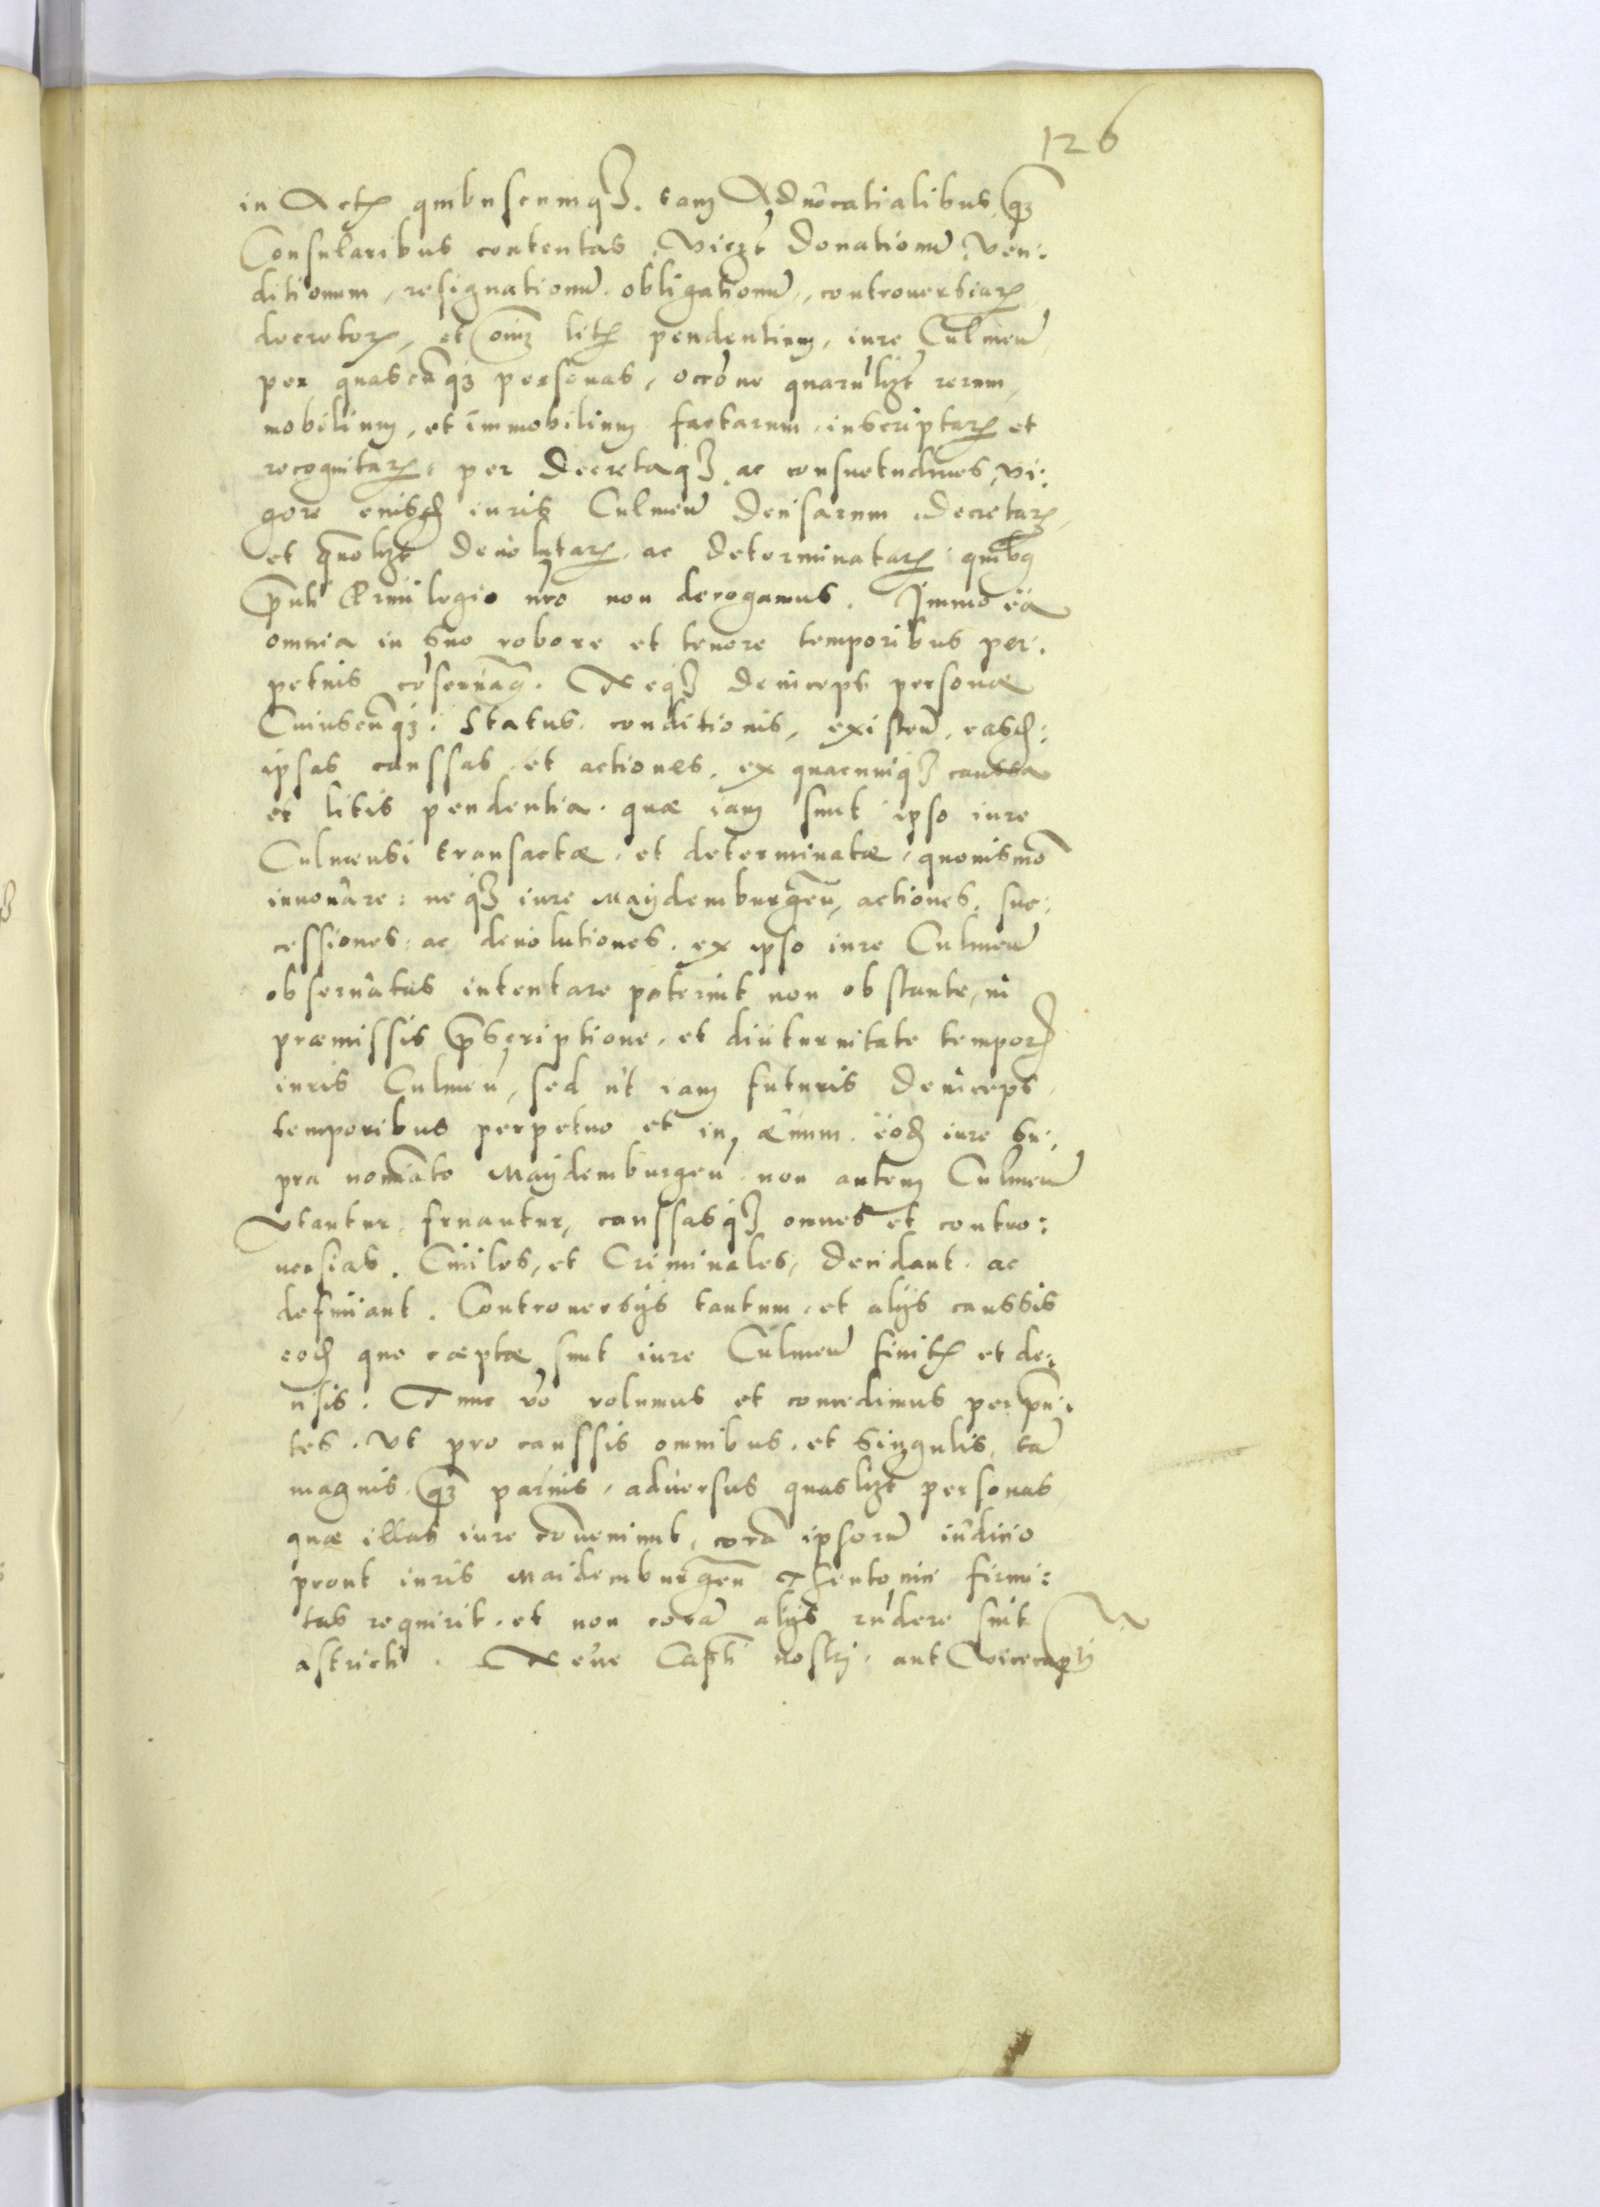 126
in Actꝭ quibuscunqꝫ. tam Aduocatialibus, qꝫ
Consularibus contentas, vicꝫt Donationū, Ven:
ditionum, resignationū. obligationū, controuersiarꝝ
decretorꝝ, et oīm litiū pendentium, iure Culmeñ
per quascūqꝫ personas, occōne quarūlibꝫt rerum,
mobilium, et immobilium factarum, inscriptarꝝ et
recognitarꝝ, per Decretaqꝫ ac consuetudines, vi:
gore eiusdꝫ iuris Culmeñ Decisarum Decretarꝝ,
et quolibꝫt deuolutarꝝ, ac determinatarꝝ: quibꝰ
p̄nti Priuilegio nr̄o non derogamus. Immo ea
omnia in suo robore et tenore temporibus per:
petuis cōseruam⁹. Neqꝫ deinceps personæ
Cuiuscūqꝫ. Status. conditionis, existeñ, easdꝫ:
ipsas caussas. et actiones, ex quacunqꝫ caussa
et litis pendentia. quæ iam sunt ipso iure
Culmensi transactæ, et determinatæ, quouismō
innouare: neqꝫ iure Maydemburgeñ, actiones, suc:
cessiones, ac deuolutiones. ex ipso iure Culmeñ
obseruatas intentare poterint non obstante, in
præmissis p̄scriptione, et diuturnitate temporꝭ
iuris Culmeñ, sed ut iam futuris Deinceps
temporibus perpetuo et in æuum. eodꝫ iure su:
pra nom̄iato Maydemburgeñ non autem Culmeñ
Vtantur, fruantur, caussasqꝫ omnes et contro:
uersias. Ciuiles, et Criminales, Decidant. ac
definiant. Controuersijs tantum, et alijs caussis
eodꝫ quo cœptæ sunt iure Culmeñ finitꝭ et de:
cisis. Tunc vō volumus et concedimus per p̄n:
tes. Vt pro caussis omnibus. et singulis, tā
magnis, qꝫ paruis, aduersus quaslibꝫt personas,
quæ illas iure conuenirint, corā ipsorū iudicio
prout iuris Maidemburgeñ Theutonici firmi:
tas requirit, et non corā alijs rñdere sint
astricti. Neue Capti nostri, aut Vicecapti